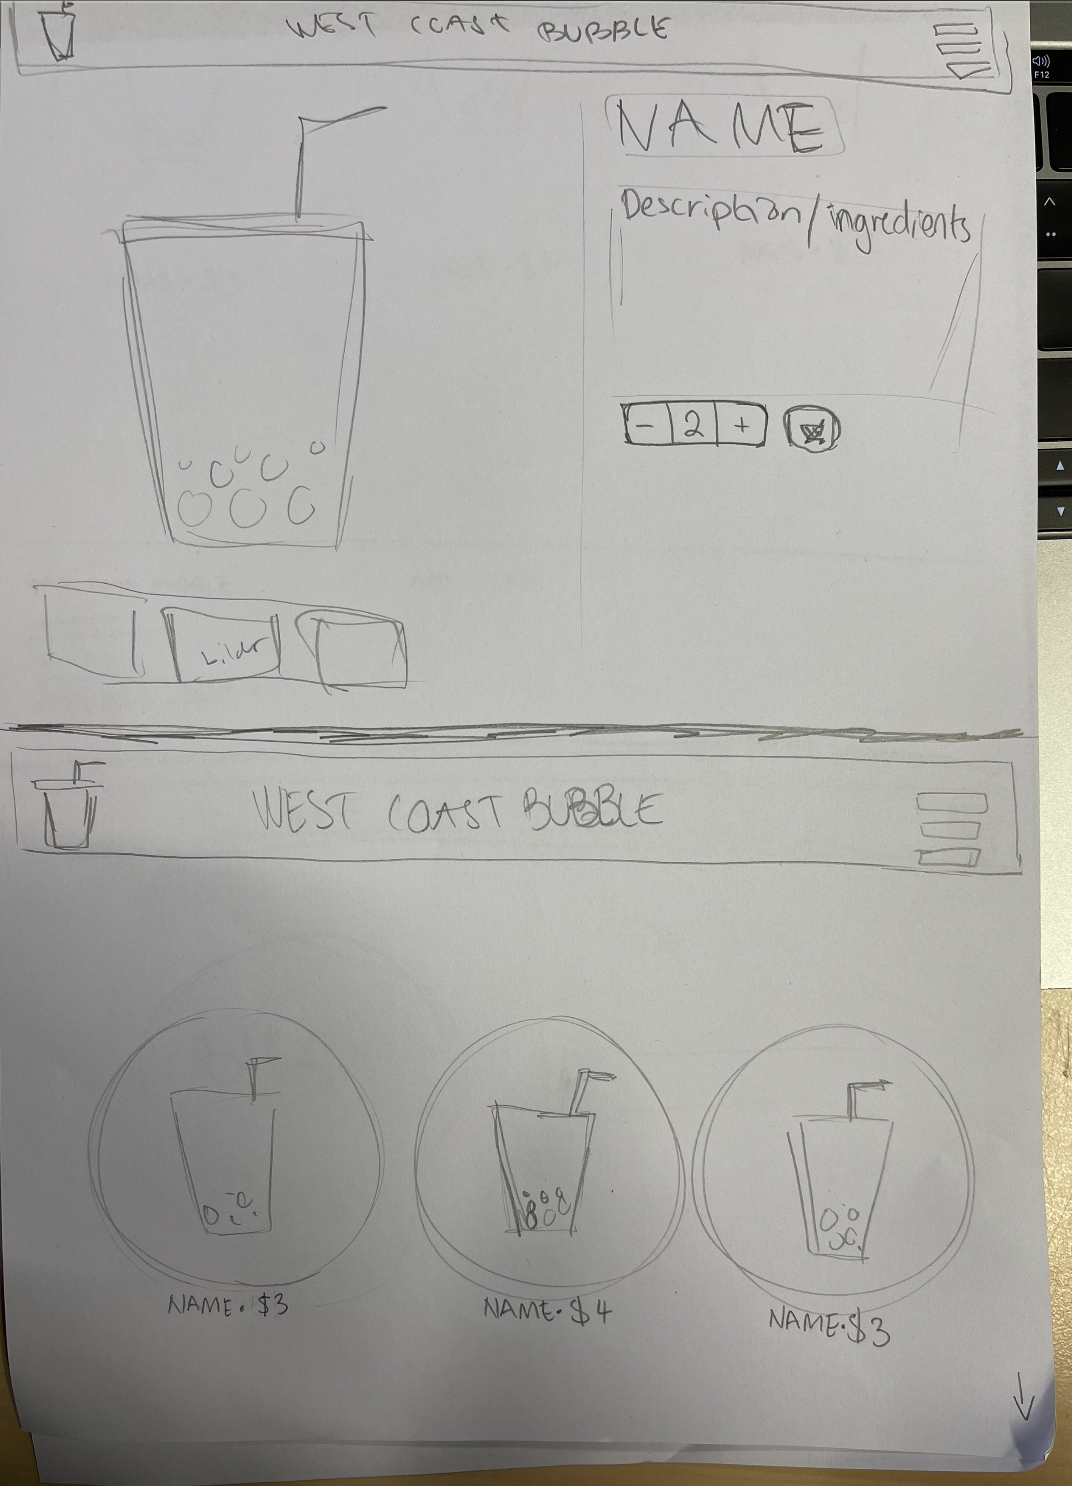 WEST COAST BUBBLE
F12
NAME
Description/ingredients
- 2 +
WEST COAST BUBBLE
NAME. $3
NAME. $4
NAME. $3